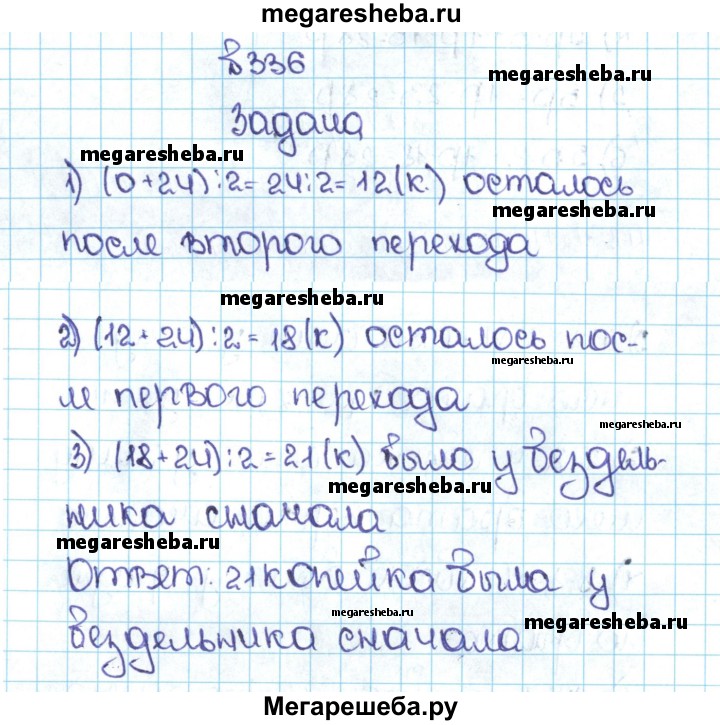 megaresheba.ru
№336
megaresheba.ru
Задача
megaresheba.ru
1) (0+24):2=24:2=12(к.) осталось
megaresheba.ru
после второго перехода
megaresheba.ru
2) (12+24):2=18(к) осталось пос-
megaresheba.ru
ле первого перехода
megaresheba.ru
3) (18+24):2=21(к) было у бездель-
megaresheba.ru
ника сначала
megaresheba.ru
Ответ: 21 копейка была у
megaresheba.ru
megaresheba.ru
бездельника сначала
Мегарешеба.ру